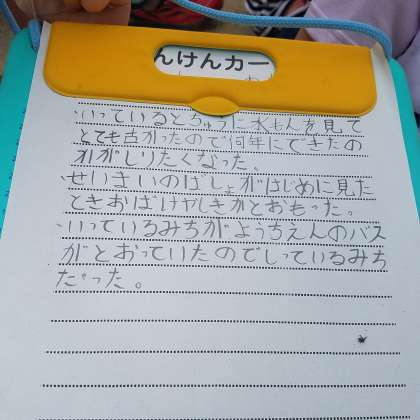 んけんカー
・いっているとちゅうに水もんを見て
とても古かったので何年にできたの
かがしりたくなった。
・せいまいのばしょがはじめに見た
ときおばけやしきかとおもった。
・いっているみちがようちえんのバス
がとおっていたのでしっているみち
だった。